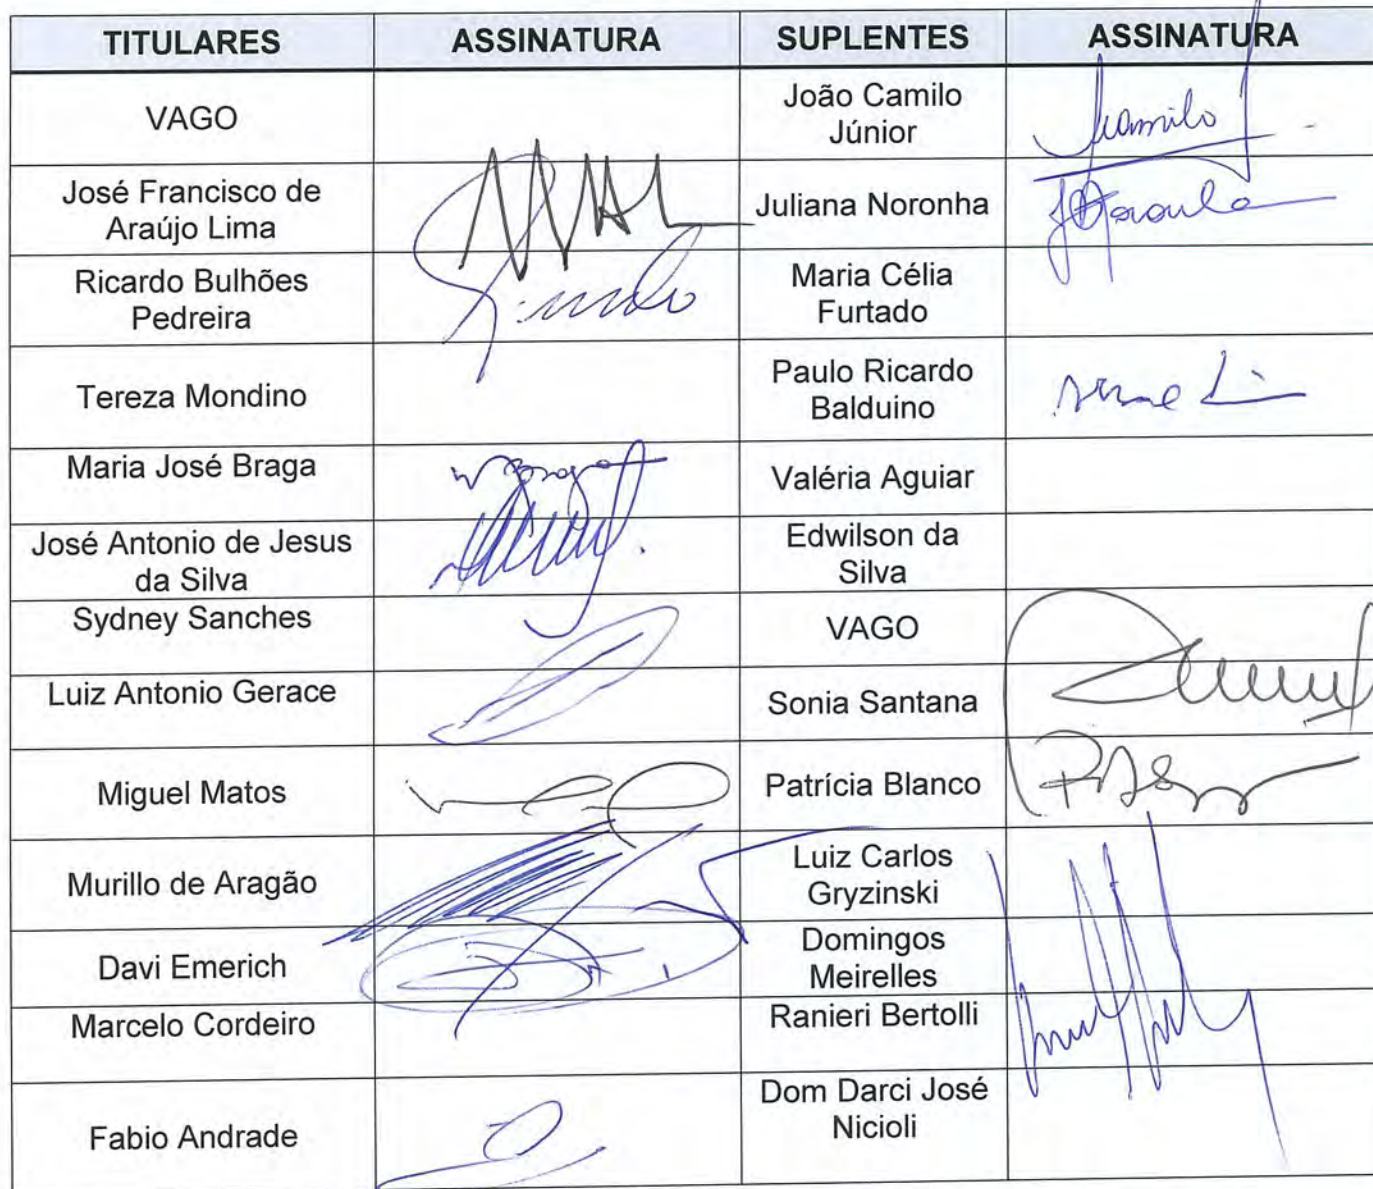 TITULARES ASSINATURA SUPLENTES ASSINATURA
VAGO João Camilo
Júnior
José Francisco de
Araújo Lima
Juliana Noronha
Ricardo Bulhões
Pedreira
Maria Célia
Furtado
Tereza Mondino
Paulo Ricardo
Balduino
Maria José Braga
Valéria Aguiar
José Antonio de Jesus
da Silva
Edwilson da
Silva
Sydney Sanches
VAGO
Luiz Antonio Gerace
Sonia Santana
Miguel Matos
Patrícia Blanco
Murillo de Aragão
Luiz Carlos
Gryzinski
Davi Emerich
Domingos
Meirelles
Marcelo Cordeiro
Ranieri Bertolli
Fabio Andrade
Dom Darci José
Nicioli